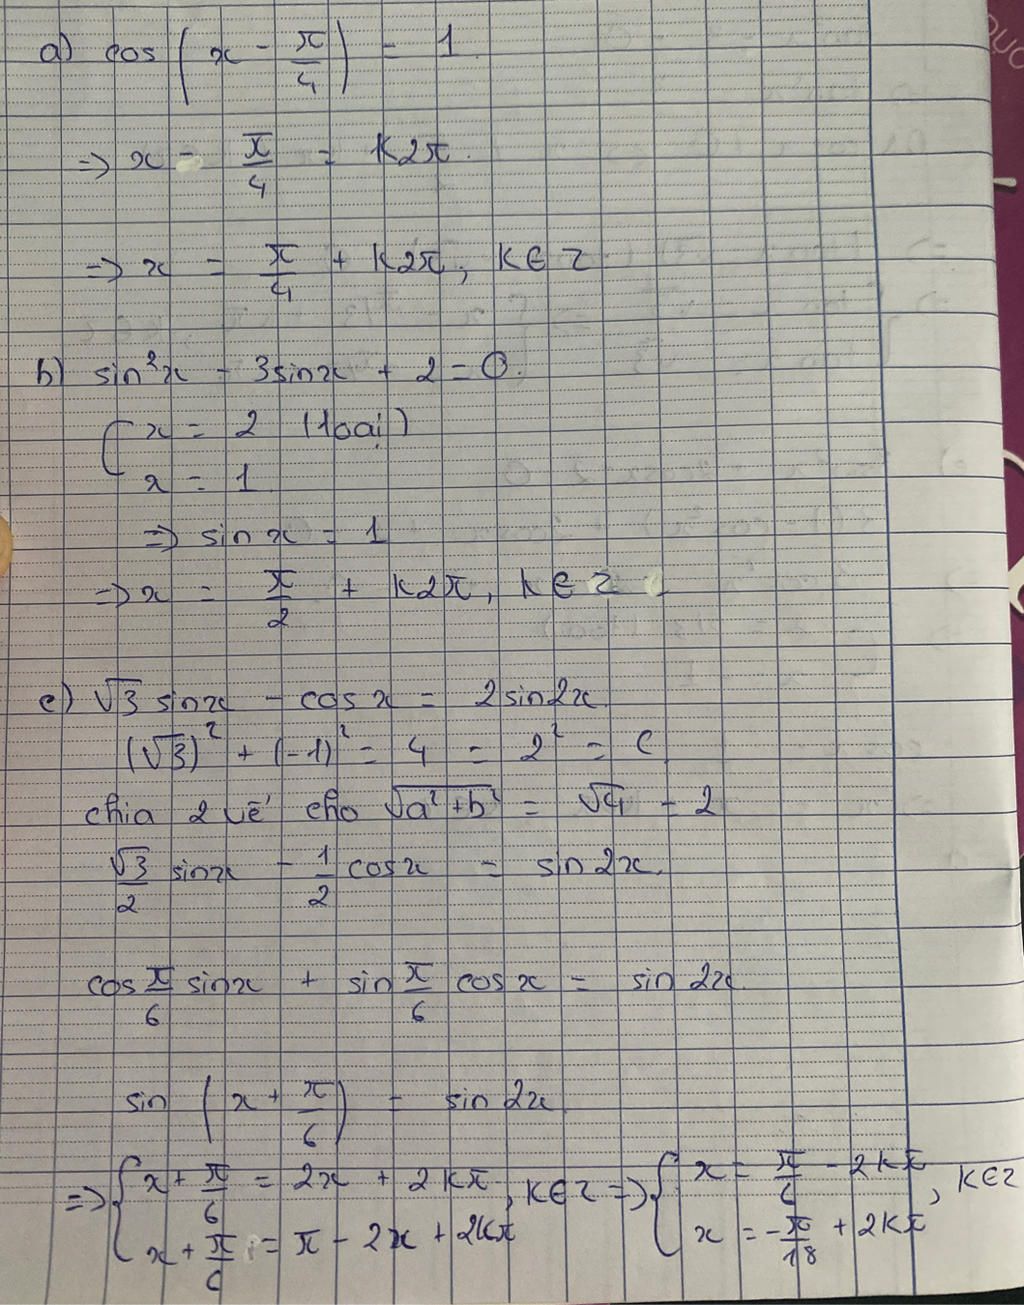 a) cos (x - π/4) = 1.
=> x - π/4 = k2π.
=> x = π/4 + k2π, k∈Z
b) sin²x - 3sinx + 2 = 0.
[ x = 2 (loại)
x = 1.
=> sin x = 1
=> x = π/2 + k2π, k∈Z
c) √3 sinx - cosx = 2sin2x.
(√3)² + (-1)² = 4 = 2² = C
chia 2 vế cho √(a² + b²) = √4 = 2
√3/2 sinx - 1/2 cosx = sin2x.
cos π/6 sinx + sin π/6 cosx = sin 2x.
sin (x + π/6) = sin 2x
=> { x + π/6 = 2x + 2kπ , k∈Z => { x = π/6 - 2kπ , k∈Z
x + π/6 = π - 2x + 2kπ x = -π/18 + 2kπ